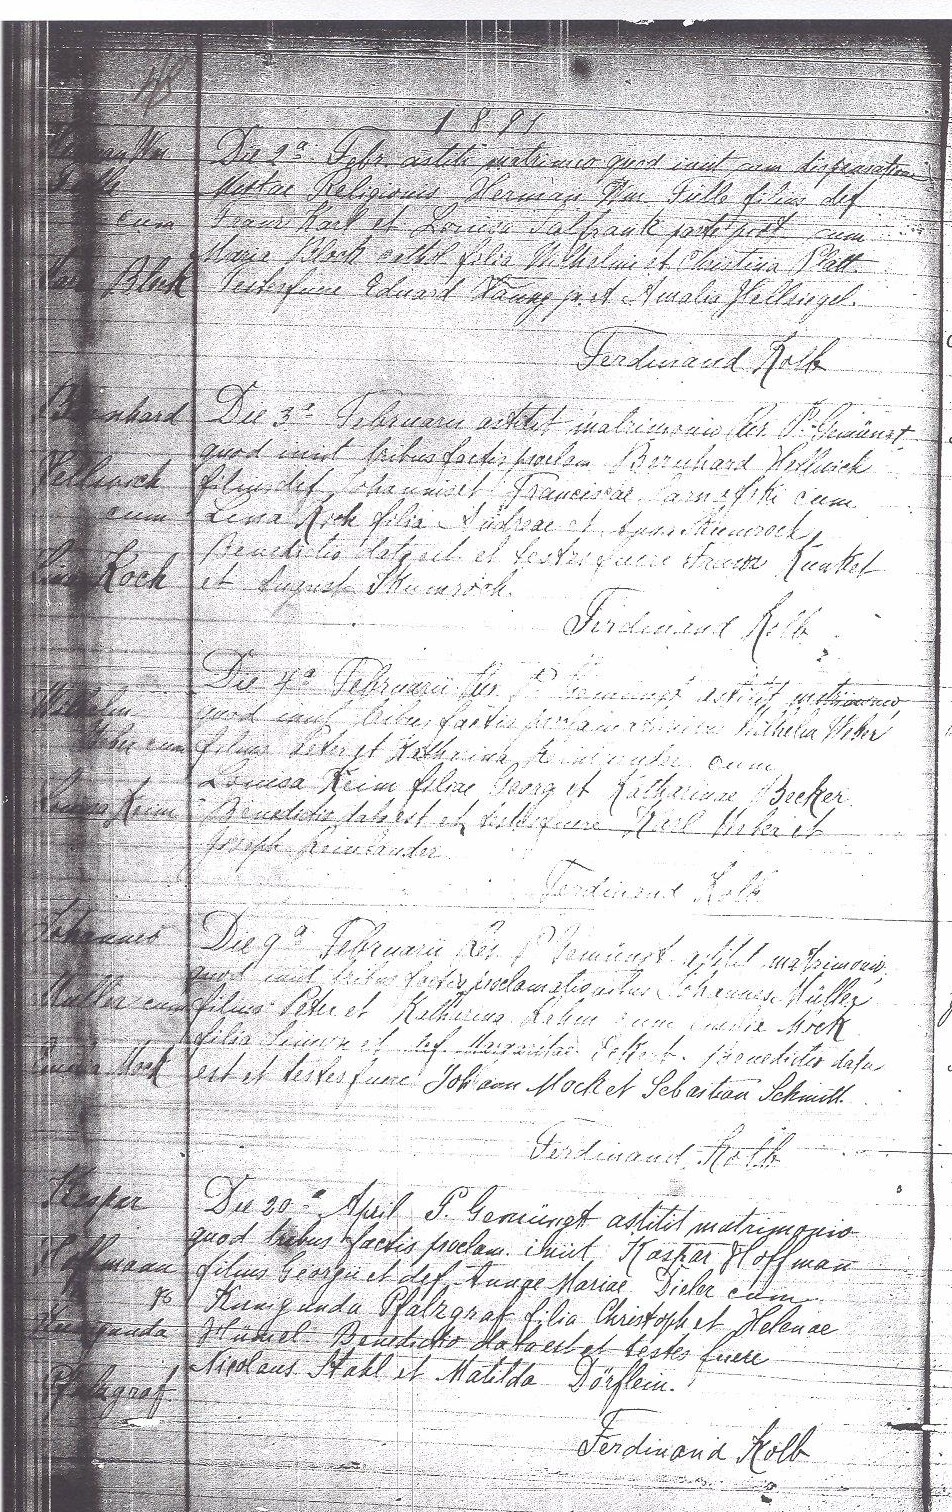 1891
Herman Wm
Tulle
cum
Maria Block
Die 2a Febr astiti matrimonio quod iniit cum dispensatione
Mixtae Religionis Herman Wm Tulle filius def
Franz Karl et Louisa Salfrank protest cum
Maria Block cathol filia Wilhelmi et Christina Platt.
Testes fuere Eduard Young jr. et Amalia Hellriegel.
Ferdinand Kolb
Bernhard
Hellwich
cum
Lina Koch
Die 3a Februarii astitit matrimonio Rev. P. Gemünst
quod iniit tribus factis proclam. Bernhard Hellwich
filius def Johannis et Franciscae cum
Lina Koch filia Andreae et Anna Stumroch
Benedictio data est et testes fuere Franz Kunkel
et August Stumroch.
Ferdinand Kolb
Wilhelm
Weber cum
Louisa Keim
Die 4a Februarii Rev. P. Gemünst astitit matrimonio,
quod iniit tribus factis proclamationibus Wilhelm Weber
filius Peter et Katharina cum
Louisa Keim filiae Georg et Katharinae Becker
Benedictio data est et testes fuere Karl Weber et
Joseph
Ferdinand Kolb
Johannes
Müller cum
Emilie Mock
Die 9a Februarii Rev. P. Gemünst astitit matrimonio,
quod iniit tribus factis proclamationibus Johannes Müller
filius Peter et Katharina cum Emilie Mock
filia Simon et def. Margaritae Eckert. Benedictio data
est et testes fuere Johann Mock et Sebastian Schmitt.
Ferdinand Kolb
Kaspar
Hoffmann
Kunigunda
Pfalzgraf
Die 20a April P. Gemüngt astitit matrimonio
quod tribus factis proclam. iniit Kaspar Hoffman
filius Georgii et def. Annae Mariae Dieler cum
Kunigunda Pfalzgraf filia Christoph et Helenae
Hümel Benedictio data est et testes fuere
Nicolaus Stahl et Matilda Dörflein.
Ferdinand Kolb